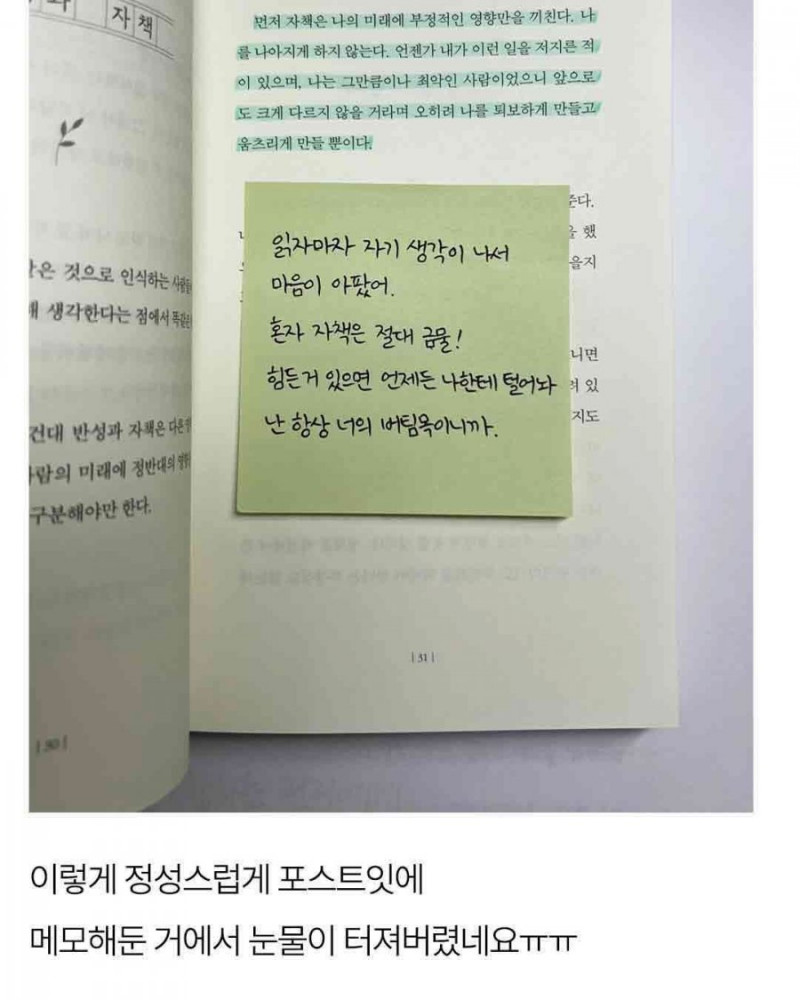 자책
먼저 자책은 나의 미래에 부정적인 영향만을 끼친다. 나
를 나아지게 하지 않는다. 언젠가 내가 이런 일을 저지른 적
이 있으며, 나는 그만큼이나 최악인 사람이었으니 앞으로
도 크게 다르지 않을 거라며 오히려 나를 퇴보하게 만들고
움츠리게 만들 뿐이다.
읽자마자 자기 생각이 나서
마음이 아팠어.
혼자 자책은 절대 금물!
힘든거 있으면 언제든 나한테 털어놔
난 항상 너의 버팀목이니까.
은 것으로 인식하는
생각한다는 점에서
건대 반성과 자책은 다른
사람의 미래에 정반대의
구분해야만 한다.
|30|
|31|
이렇게 정성스럽게 포스트잇에
메모해둔 거에서 눈물이 터져버렸네요ㅠㅠ